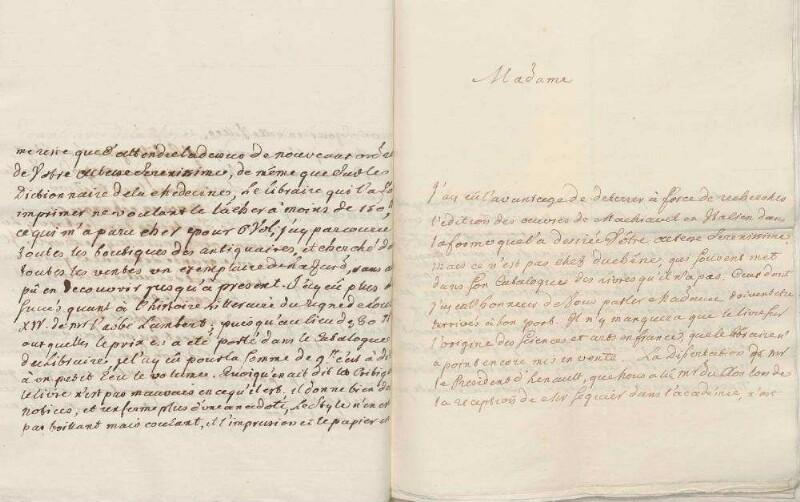 me reste que d'attendre la dessus de nouveaux ord
de Votre altesse serenissime, de même que sur les
Dictionnaire de la medecines, le libraire qui l'a
imprimer ne voulant le lâcher à moins de 150
ce qui m'a paru cher pour 6 Vol, j'ay parcouru
toutes les boutiques des antiquaires, et cherché da
toutes les ventes un exemplaire de hazard, sans a
pû en decouvrir jusqu'a present. J'ay eu plus
succés quant à l'histoire litteraire du regne de lou
XIV. de Mr l'abbé Lambert, puisqu'au lieu de 30
auxquelles le prix a été porté dans le Catalogue
du libraire je l'ay eu pour la somme de 9
a un petit Ecu le volume. Quoiqu'en ait dit les Critiq
le livre n'est pas mauvais en ce qu'il est. il donne bien d
notices, et renferme plus d'une anecdote, le style n'en e
pas brillant mais coulant, et l'impression et le papier
Madame
J'ay eu l'avantage de deterrer à force de recherches
l'édition des œuvres de Machiavel en Italien dans
la forme que l'a desirée Vôtre altesse Serenissime
mais ce n'est pas chez duchêne, qui souvent met
dans son Catalogue des livres qu'il n'a pas. Ceux dont
j'ay eu l'honneur de Vous parler Madame doivent etre
arrivés à bon port. Il n'y manquera que le livre sur
l'origine des sciences et arts en france, que le libraire n'
a point encore mis en vente. La Dissertation de Mr
le President d'henault, que nous a lû Mr du Clos lors de
la reception de Mr seguier dans l'academie, n'est